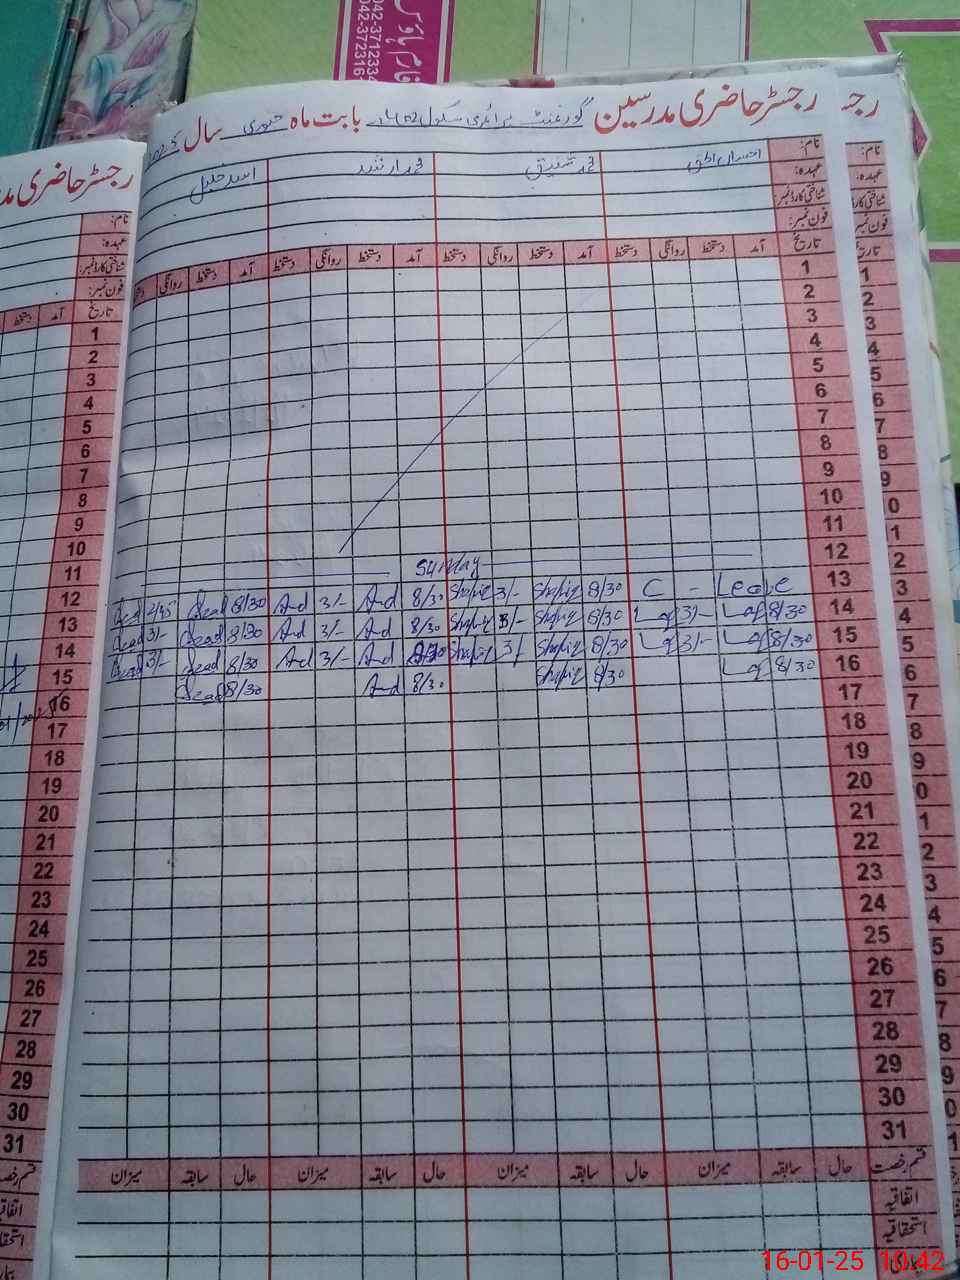 رجسٹر حاضری مدرسین گورنمنٹ پرائمری سکول 14/02 بابت ماہ جنوری سال 2025
نام: احسان الحق محمد شفیق محمد ارشد اسد خلیل
عہدہ:
شناختی کارڈ نمبر:
فون نمبر:
تاریخ آمد دستخط روانگی دستخط آمد دستخط روانگی دستخط آمد دستخط روانگی دستخط آمد دستخط روانگی
1
2
3
4
5
6
7
8
9
10
11
12 Sunday
13 C - Leave 8/30 Shafiq 3/- Shafiq 8/30 And 3/- And 8/30 Asad 2/45 Asad
14 8/30 3/- 8/30 Shafiq 3/- Shafiq 8/30 And 3/- And 8/30 Asad 3/- Asad
15 8/30 3/- 8/30 Shafiq 3/- Shafiq And 3/- And 8/30 Asad 3/- Asad
16 8/30 8/30 Shafiq 8/30 And 8/30 Asad
17
18
19
20
21
22
23
24
25
26
27
28
29
30
31
قسم رخصت حال سابقہ میزان حال سابقہ میزان حال سابقہ میزان حال سابقہ میزان
اتفاقیہ
استحقاقیہ
رجسٹر حاضری
نام:
عہدہ:
شناختی کارڈ نمبر:
فون نمبر:
تاریخ آمد دستخط
1
2
3
4
5
6
7
8
9
10
11
12
13
14
15
16
17
18
19
20
21
22
23
24
25
26
27
28
29
30
31
فارم ہاؤس
042-3712334
042-3723165
16-01-25 10:42